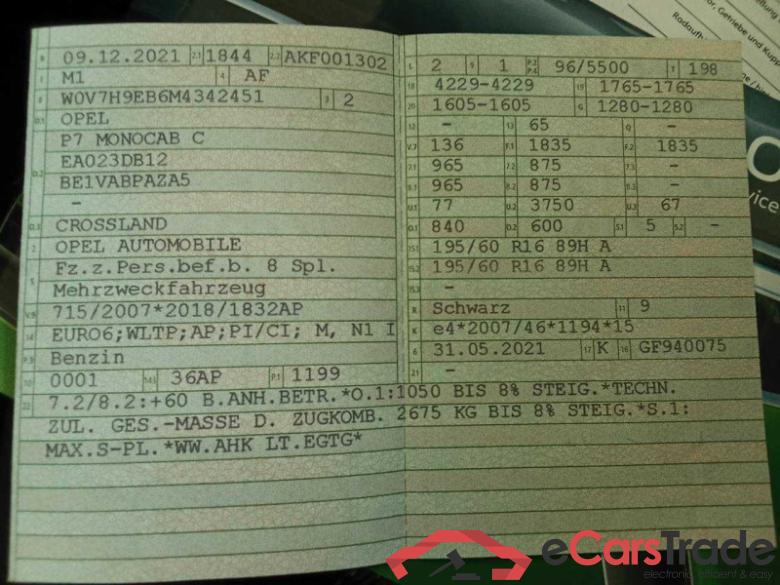 09.12.2021 2.1 1844 2.2 AKF001302
J M1 4 AF
E W0V7H9EB6M4342451 3 2
D.1 OPEL
P7 MONOCAB C
D.2 EA023DB12
BE1VABPAZA5
-
D.3 CROSSLAND
2 OPEL AUTOMOBILE
5 Fz.z.Pers.bef.b. 8 Spl.
Mehrzweckfahrzeug
V.9 715/2007*2018/1832AP
14 EURO6;WLTP;AP;PI/CI; M, N1 I
P.3 Benzin
10 0001 14.1 36AP P.1 1199
22 7.2/8.2:+60 B.ANH.BETR.*O.1:1050 BIS 8% STEIG.*TECHN.
ZUL. GES.-MASSE D. ZUGKOMB. 2675 KG BIS 8% STEIG.*S.1:
MAX.S-PL.*WW.AHK LT.EGTG*
L 2 9 1 P.2 P.4 96/5500 T 198
18 4229-4229 19 1765-1765
20 1605-1605 G 1280-1280
12 - 13 65 Q -
V.7 136 F.1 1835 F.2 1835
7.1 965 7.2 875 7.3 -
8.1 965 8.2 875 8.3 -
U.1 77 U.2 3750 U.3 67
O.1 840 O.2 600 S.1 5 S.2 -
15.1 195/60 R16 89H A
15.2 195/60 R16 89H A
15.3 -
R Schwarz 11 9
K e4*2007/46*1194*15
6 31.05.2021 17 K 16 GF940075
21 -
or, Getriebe und Kupp
vice
eCarsTrade
electronic, efficient & easy